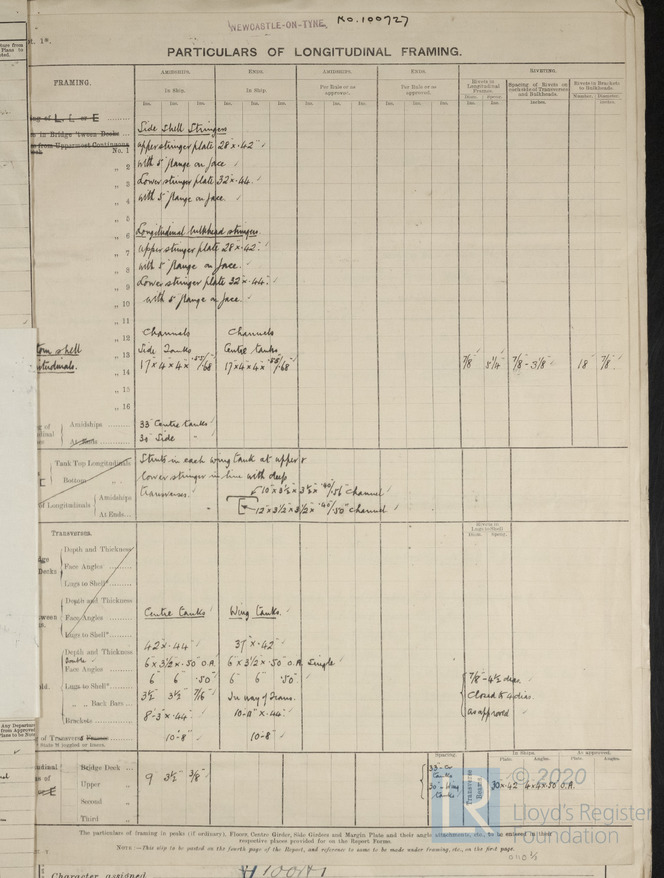 NEWCASTLE-ON-TYNE. No. 100727
PARTICULARS OF LONGITUDINAL FRAMING.
FRAMING.
AMIDSHIPS ENDS. AMIDSHIPS. ENDS. RIVETING.
In Ship. In Ship. Per Rule or as approved. Per Rule or as approved.
Rivets in Longitudinal Frames. Spacing of Rivets on each side of Transverses and Bulkheads. Rivets in Brackets to Bulkheads.
Side Shell Stringers
No. 1 upper stringer plate 28" x .42"
„ 2 with 5" flange on face.
„ 3 Lower stringer plate 32" x .44.
„ 4 with 5" flange on face.
„ 5
„ 6 Longitudinal bulkhead stringers
„ 7 upper stringer plate 28" x .42"
„ 8 with 5" flange on face.
„ 9 Lower stringer plate 32" x .44.
„ 10 with 5" flange on face.
„ 11
„ 12 Channels Channels
„ 13 Side Tanks Centre tanks
„ 14 17" x 4" x 4" 17" x 4" x 4" 7/8" 5 1/4" 7/8" - 3 1/8" 18" 7/8"
„ 15
„ 16
Amidships 33" Centre tanks
At Ends 30" Side "
Tank Top Longitudinals Struts in each wing tank at upper &
Bottom „ lower stringer in line with deep
transverses.
of Longitudinals Amidships 10" x 3 1/2" x 3 1/2" channel
At Ends 12" x 3 1/2" x 3 1/2" x .40/.50" channel
Transverses.
Depth and Thickness
Face Angles
Lugs to Shell*
Depth and Thickness
Face Angles Centre tanks. Wing tanks.
Lugs to Shell*
Depth and Thickness 42" x .44" 37" x .42"
Double Face Angles 6" x 3 1/2" x .50" O.A. 6" x 3 1/2" x .50" O.A. Single
Lugs to Shell* 6" 6" .50" 6" 6" .50" 7/8" - 4 1/2 dias.
„ Back Bars 3 1/2" 3 1/2" 7/16" In way of Seams. Closed to 4 dias.
Brackets 8'-3" x .44" 10'-0" x .44" as approved
of Transverse Frames 10'-8" 10'-8"
Spacing. In Ships. As approved.
Plate. Angles. Plate. Angles.
Bridge Deck 9" 3 1/2" 3/8" 33" Cr tanks
Upper „ 30" Wing tanks Transverse Beams 30 x .42" 4 x 4 x .50 O.A.
Second „
Third „
The particulars of framing in peaks (if ordinary), Floors Centre Girder, Side Girders and Margin Plate and their angle attachments, etc., to be entered in their
respective places provided for on the Report Forms.
NOTE.—This slip to be pasted on the fourth page of the Report, and reference to same to be made under framing, etc., on the first page.
Character assigned
© 2020
Lloyd's Register
Foundation